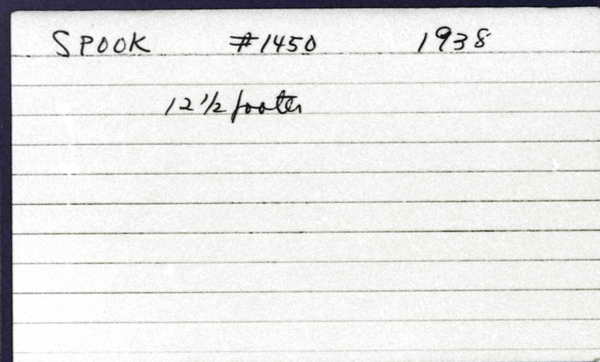 SPOOK #1450 1938
12 1/2 footer